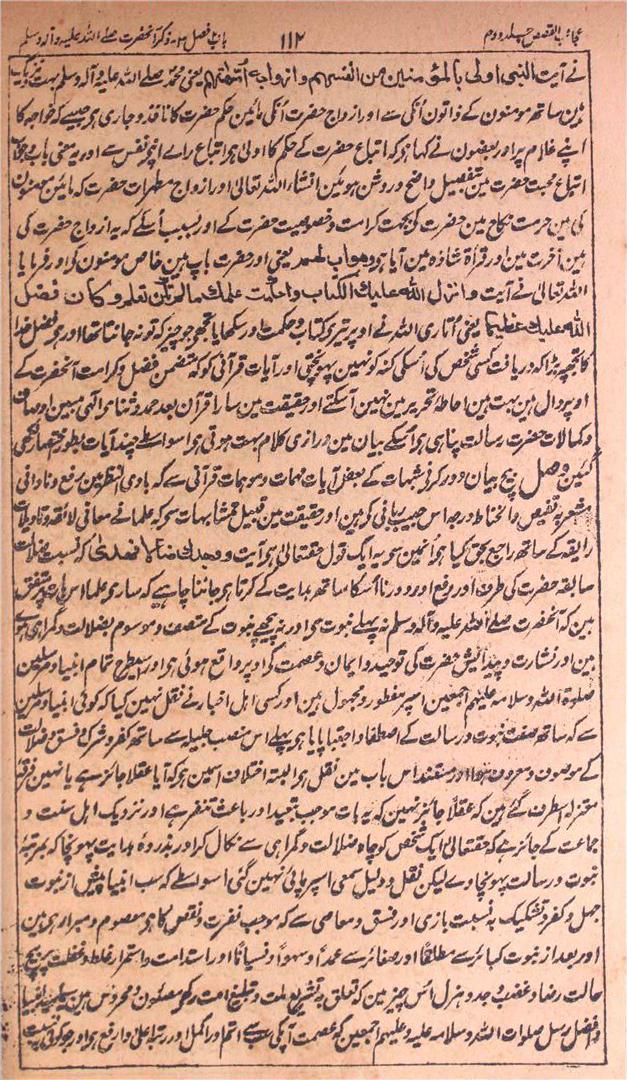 عجائب القصص جلد دوم ۱۱۲ باب فصل ۲ ذکر آنحضرت صلے اللہ علیہ وآلہ وسلم
نے آیت النبی اولی بالمؤمنین من انفسهم وازواجه امهتهم یعنی محمد صلے اللہ علیہ وآلہ وسلم بہت نزدیک
ہین ساتھ مومنون کے ذاتون اُنکی سے اور ازواج حضرت اُنکی مائین حکم حضرت کا نافذ و جاری ہو جیسے کہ خواجہ کا
اپنے غلام پر اور بعضون نے کہا ہو کہ اتباع حضرت کے حکم کا اولی ہو اتباع راے اپنے نفس سے اور یہ معنی باب وجوب
اتباع محبت حضرت مین تفصیل واضح و روشن ہوئین انشاء اللہ تعالی اور ازواج مطہرات حضرت کہ مائین مومنون
کی ہین حرمت نکاح مین حضرت کو بجہت کرامت و خصوصیت حضرت کے اور بسبب اسکے کہ یہ ازواج حضرت کی
ہین آخرت مین اور قرأة شاذہ مین آیا ہو وهو اب لهم یعنی اور حضرت باپ ہین خاص مومنون کو اور فرمایا
اللہ تعالی نے آیت و انزل الله عليك الكتاب والحكمت علمك مالم تكن تعلم وكان فضل
الله عليك عظيما یعنی اُتاری اللہ نے اوپر تیری کتاب و حکمت اور سکھایا تجھو جو چیز کہ تو نہ جانتا تھا اور ہو فضل خدا
کا تجھپر بڑا کہ دریافت کسی شخص کی اُسکی کنہ کو نہین پہونچتی اور آیات قرآنی کو کہ متضمن فضل و کرامت آنحضرت کے
اوپر دال ہین بہت ہین احاطہ تحریر مین نہین آسکتے اور حقیقت مین سارا قرآن بعد حمد و ثناء الہی مبین اوصاف
و کمالات حضرت رسالت پناہی ہو اسکے بیان مین درازی کلام بہت ہوتی ہو اسواسطے چند آیات بطور مختصار لکھی
گئین وصل بیچ بیان دور کرنی شبہات کے بعض آیات مبہمات و موہمات قرآنی سے کہ بادی النظر مین رفع و نادانی
مشعر بہ تنقیص و انحطاط درجہ اس حبیب ربانی کو ہین اور حقیقت مین قبیل متشابہات سے کہ علما نے معانی لائقہ و تاویلات
رایقہ کے ساتھ راجع بحق کیا ہو اُنمین سو یہ ایک قول حقتعالی ہو آیت ووجدك ضالا فهدى کہ نسبت ضلالت
سابقہ حضرت کی طرف اور رفع اور دور کرنا اُسکا ساتھ ہدایت کے کرتا ہو جاننا چاہیے کہ ساری علما اس بات پر متفق
ہین کہ آنحضرت صلے اللہ علیہ وآلہ وسلم نہ پہلے نبوت سے اور نہ پیچھے نبوت کے متصف و موسوم بضلالت و گمراہی ہوے
ہین اور نشأت و پیدائیش حضرت کی توحید و ایمان و عصمت کے اوپر واقع ہوئی ہو اور اسیطرح تمام انبیا و مرسلین
صلوة اللہ و سلامہ علیہم اجمعین اسپر مفطور و مجبول ہین اور کسی اہل اخبار نے نقل نہین کیا کہ کوئی انبیا و مرسلین
سے کہ ساتھ صفت نبوت و رسالت کے اصطفا و اجتبا پایا ہو پہلے اس منصب جلیلہ سے ساتھ کفر و شرک و فسق و ضلالت
کے موصوف و معروف ہوا اور مستند اس باب مین نقل ہو البتہ اختلاف اسمین ہو کہ آیا عقلا جائز ہے یا نہین فرقہ
معتزلہ اسطرف گئے ہین کہ عقلا جائز نہین کہ یہ بات موجب تبعید اور باعث تنفر ہے اور نزدیک اہل سنت و
جماعت کے جائز ہے کہ حقتعالی ایک شخص کو چاہ ضلالت و گمراہی سے نکال کر اور بذروۂ ہدایت پہونچا کر بمرتبہ
نبوت و رسالت پہونچاوے لیکن نقل و دلیل سمعی اسپر پائی نہین گئی اسواسطے کہ سب انبیا پیش از نبوت
جہل و کفر و تشکیک بہ نسبت باری اور فسق و معاصی سے کہ موجب نفرت و نقص کا ہو معصوم و مبرا رہی ہین
اور بعد از نبوت کبائر سے مطلقا اور صغائر سے عمدا و سہوا و نسیانا اور استدامت و استمرار غلط و غفلت پر بیچ
حالت رضا و غضب و جد و ہزل اُس چیز مین کہ تعلق بہ تشریع ملت و تبلیغ امت رکھو مصئون و محروس ہین سید انبیا
و افضل رسل صلوات اللہ و سلامہ علیہ و علیہم اجمعین کہ عصمت آپکی سب سے اتم اور اکمل اور رتبا اعلی و ارفع ہو اور جو کوئی نسبت